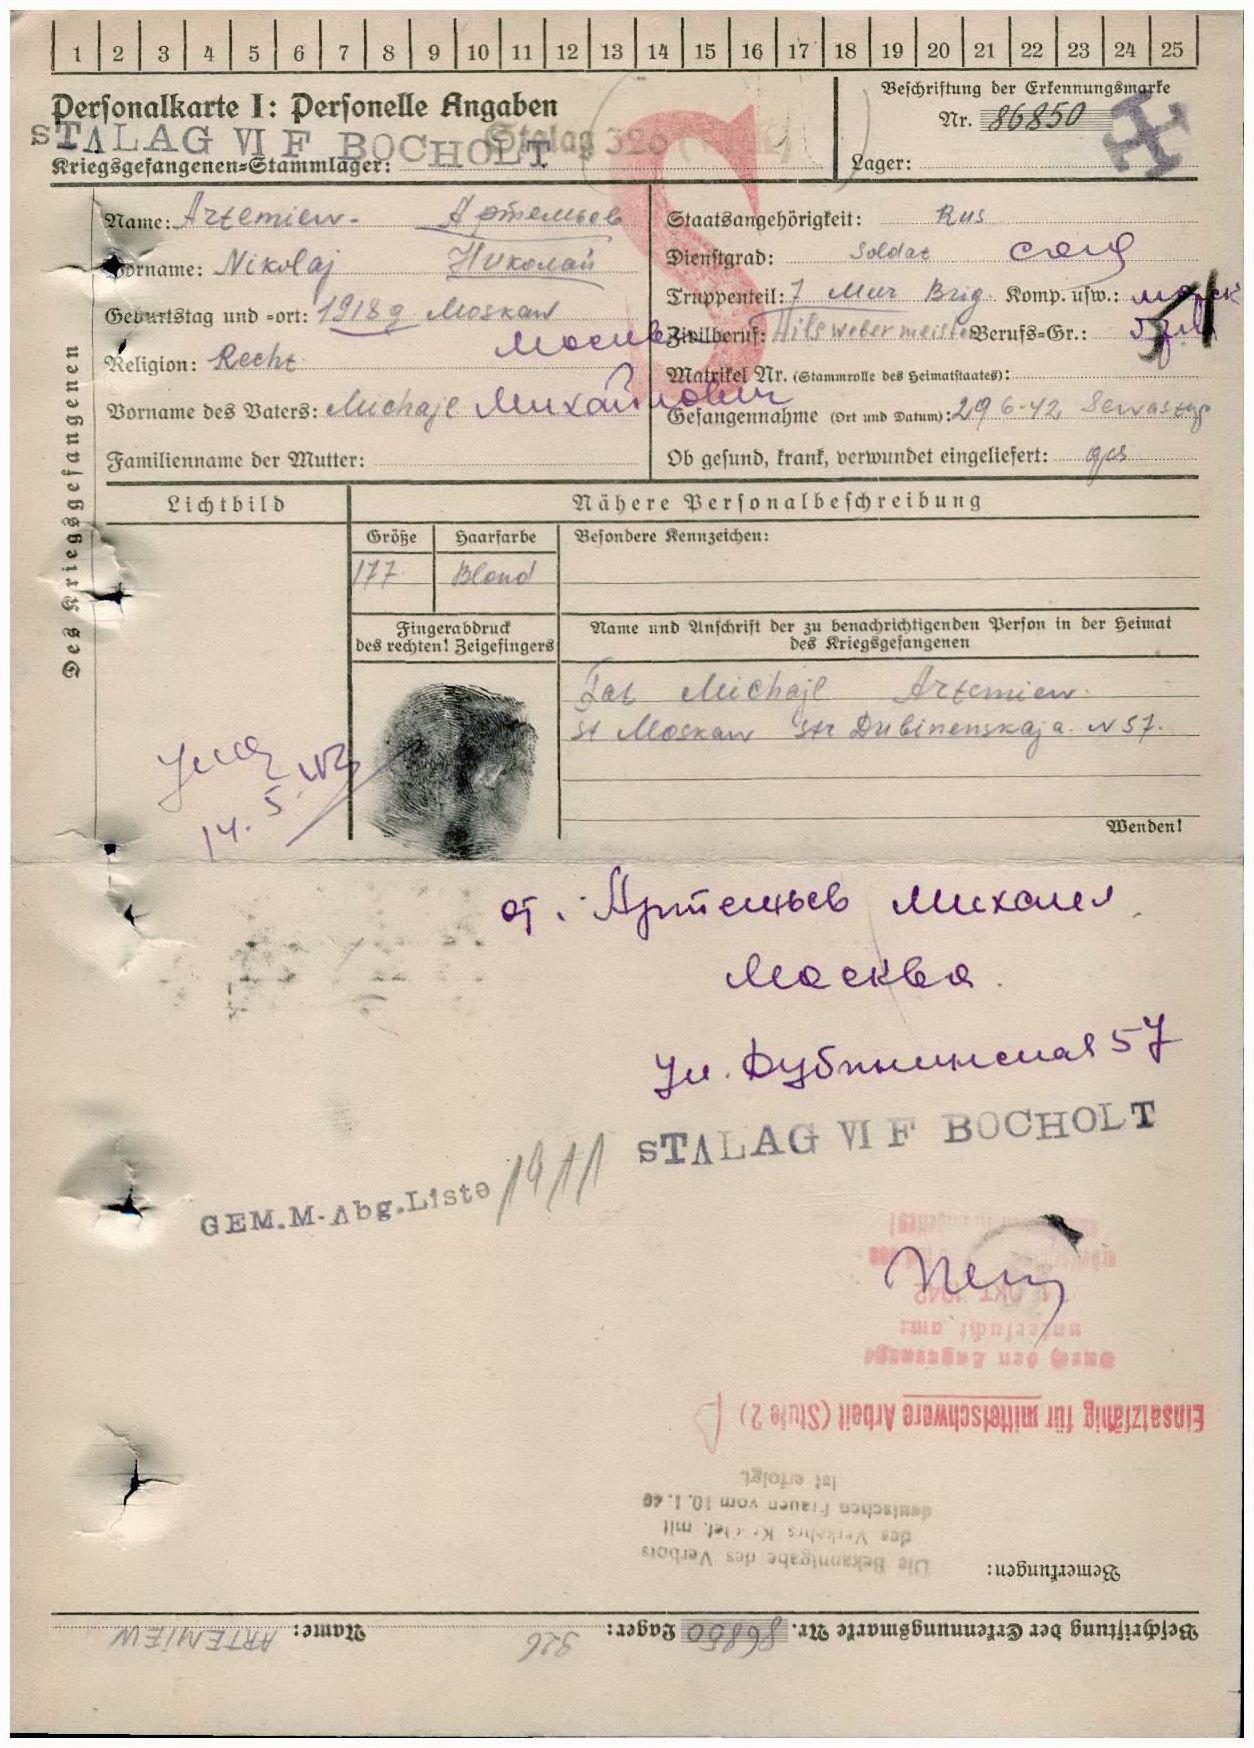 1 2 3 4 5 6 7 8 9 10 11 12 13 14 15 16 17 18 19 20 21 22 23 24 25
Personalkarte I: Personelle Angaben
STALAG VI F BOCHOLT Stalag 326
Kriegsgefangenen-Stammlager:
Beschriftung der Erkennungsmarke
Nr. 86850
Lager:
S
Des Kriegsgefangenen
Name: Artemiew - Артемьев
Vorname: Nikolaj Николай
Geburtstag und -ort: 1918 g Moskau
Москва
Religion: Recht
Vorname des Vaters: Michajl Михайлович
Familienname der Mutter:
Staatsangehörigkeit: Rus
Dienstgrad: Soldat солд
Truppenteil: 7 Mar Brig. Komp. usw.:
Zivilberuf: Hilfswebermeister Berufs-Gr.:
Matrikel Nr. (Stammrolle des Heimatstaates):
Gefangennahme (Ort und Datum): 29 6-42 Sewastop
Ob gesund, krank, verwundet eingeliefert: ges
Lichtbild
Nähere Personalbeschreibung
Größe Haarfarbe Besondere Kennzeichen:
177 Blond
Fingerabdruck
des rechten! Zeigefingers
Name und Anschrift der zu benachrichtigenden Person in der Heimat
des Kriegsgefangenen
Fat Michajl Artemiew
St Moskau Str Dubinenskaja N 57.
Wenden!
14. 5.
от. Артемьев Михаил
Москва.
Ул. Дубининская 57
STALAG VI F BOCHOLT
GEM.M-Abg.Liste 1911
OKT 1942
untersucht am:
Durch den Lagerarzt
Einsatzfähig für mittelschwere Arbeit (Stufe 2)
Bemerkungen:
Die Bekanntgabe des Verbots
des Verkehrs Kr. Gef. mit
deutschen Frauen vom 10.1.40
ist erfolgt.
Beschriftung der Erkennungsmarke Nr. 86850 Lager: 326 Name: ARTEMIEW